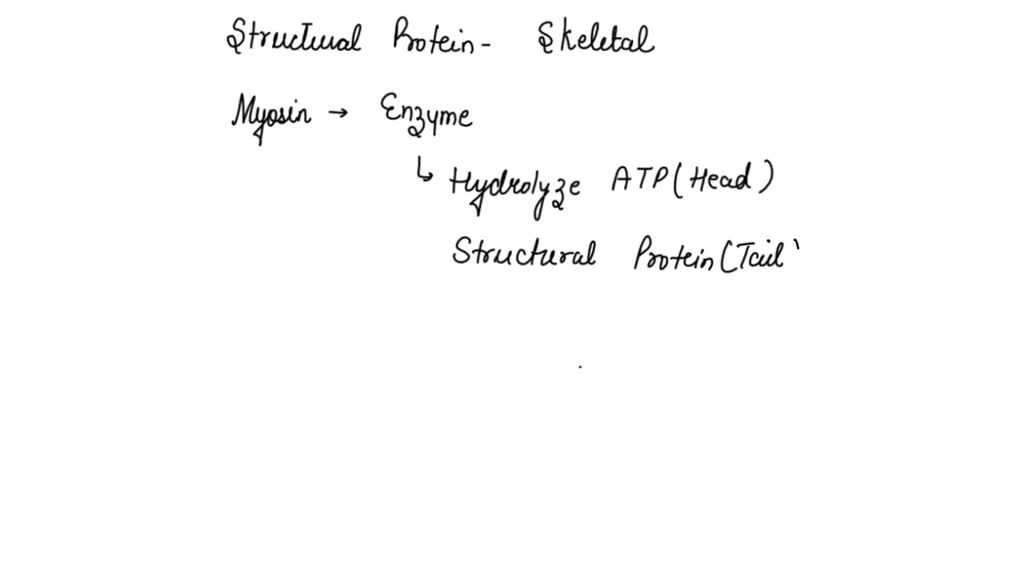 Structural Protein - Skeletal
Myosin → Enzyme
↳ Hydrolyze ATP (Head)
Structural Protein (Tail)